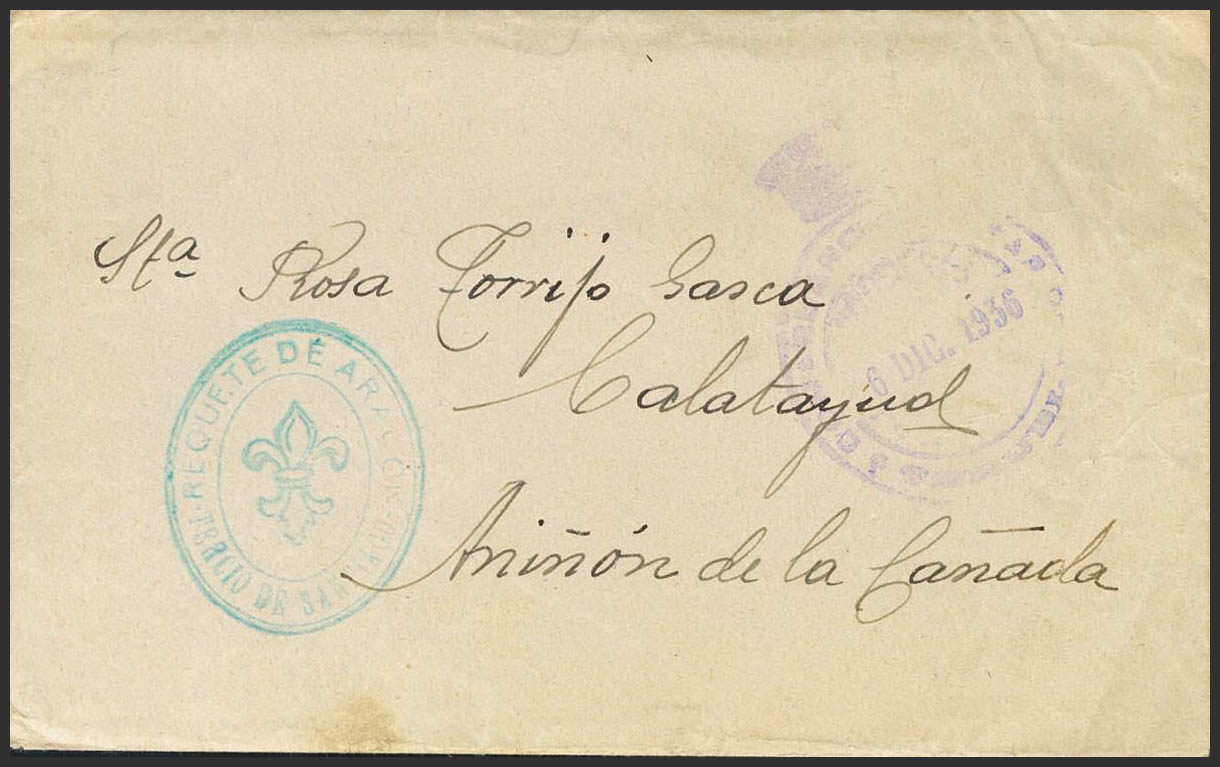 Sta Rosa Torrijo Gasca
Calatayud
Aniñón de la Cañada
REQUETE DE ARAGON
TERCIO DE SANTIAGO
6 DIC. 1936